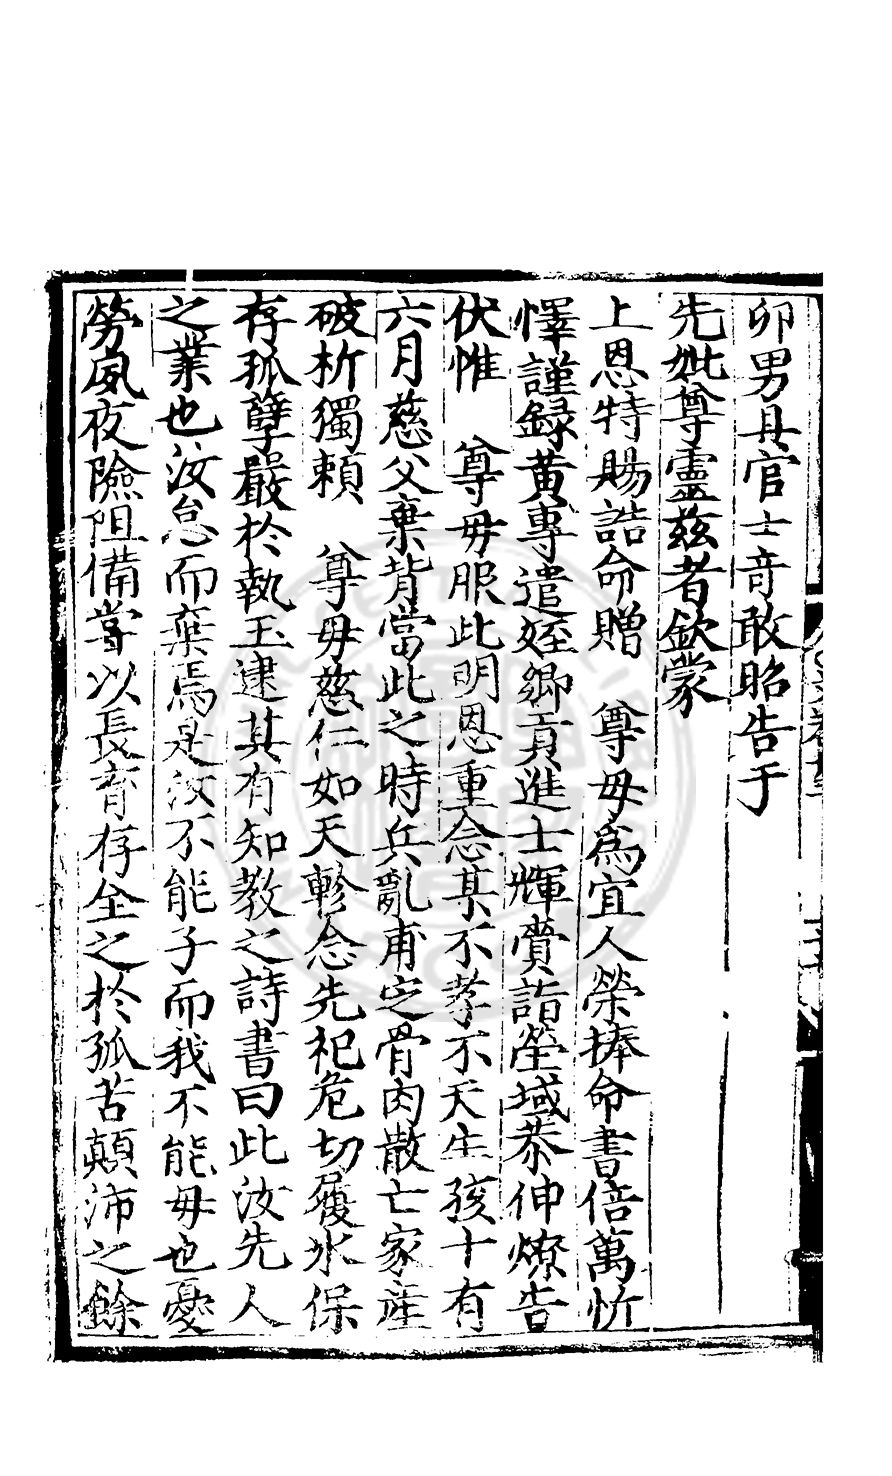 卯男具官士奇敢昭告于
先妣尊靈茲者欽蒙
上恩特賜誥命贈　尊毋爲宜人榮捧命書倍萬忻
懌謹録黄專遣姪鄉貢進士輝賫詣塋域恭伸燎告
伏惟　尊毋服此明恩重念某不孝不天生孩十有
六月慈父棄背當此之時兵亂甫定骨肉散亡家産
破析獨頼　尊毋慈仁如天軫念先祀危切履氷保
存孤孽嚴於執玉逮其有知教之詩書曰此汝先人
之業也汝怠而棄焉是汝不能子而我不能毋也憂
勞夙夜險阻備嘗以長育存全之於孤苦顛沛之餘